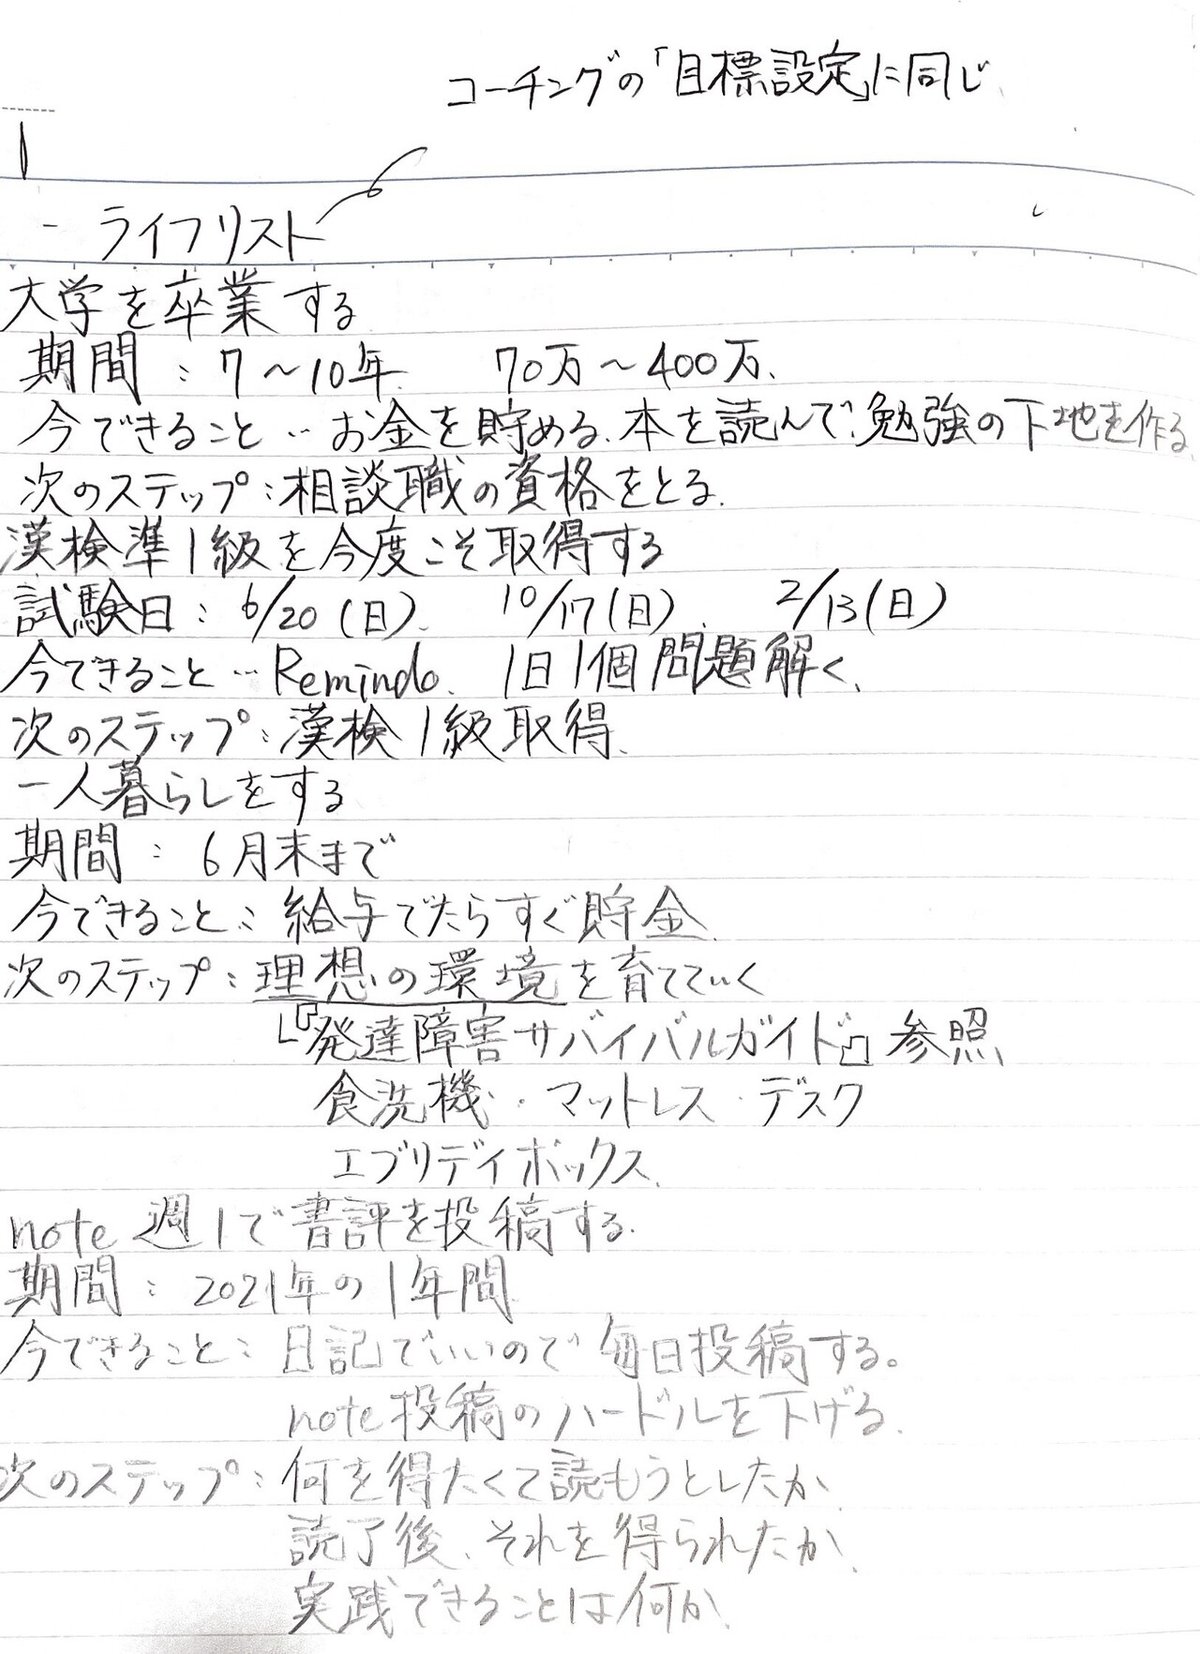 コーチングの「目標設定」に同じ
- ライフリスト
大学を卒業する
期間：7～10年 70万～400万、
今できること…お金を貯める、本を読んで、勉強の下地を作る、
次のステップ：相談職の資格をとる、
漢検準1級を今度こそ取得する
試験日：6/20(日)、 10/17(日)、 2/13(日)
今できること…Remindo、1日1個問題解く、
次のステップ：漢検1級取得、
一人暮らしをする
期間：6月末まで
今できること：給与でたらすぐ貯金、
次のステップ：理想の環境を育てていく
『発達障害サバイバルガイド』参照、
食洗機・マットレス・デスク
エブリデイボックス、
note 週1で書評を投稿する、
期間：2021年の1年間
今できること：日記でいいので毎日投稿する。
note投稿のハードルを下げる、
次のステップ：何を得たくて読もうとしたか、
読了後、それを得られたか、
実践できることは何か、